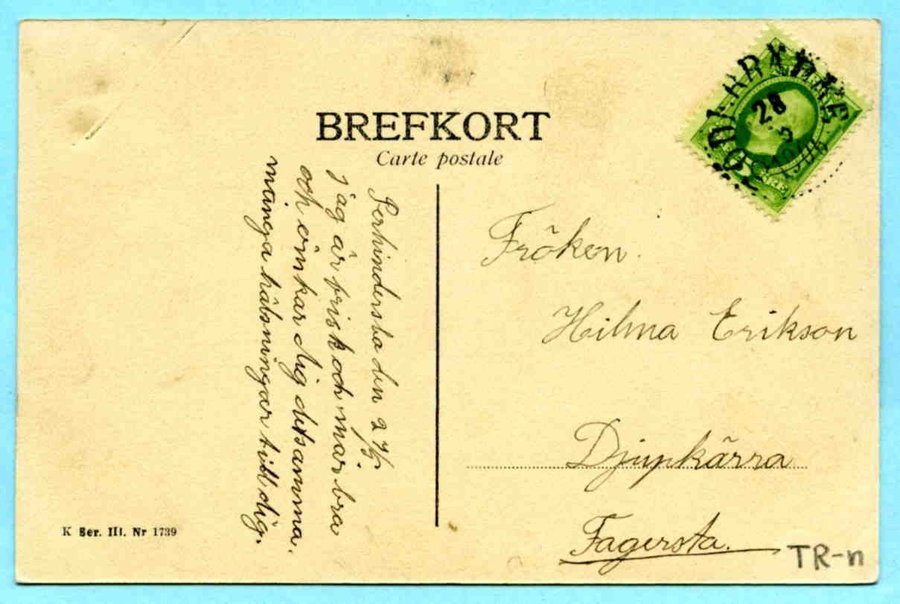 BREFKORT
Carte postale
den
jag är frisk och mår bra
och önskar dig detsamma.
många hälsningar till dig.
Fröken.
Hilma Erikson
Djupkärra
Fagersta.
K Ser. III. Nr 1739
TR-n
SÖDERBÄRKE
28